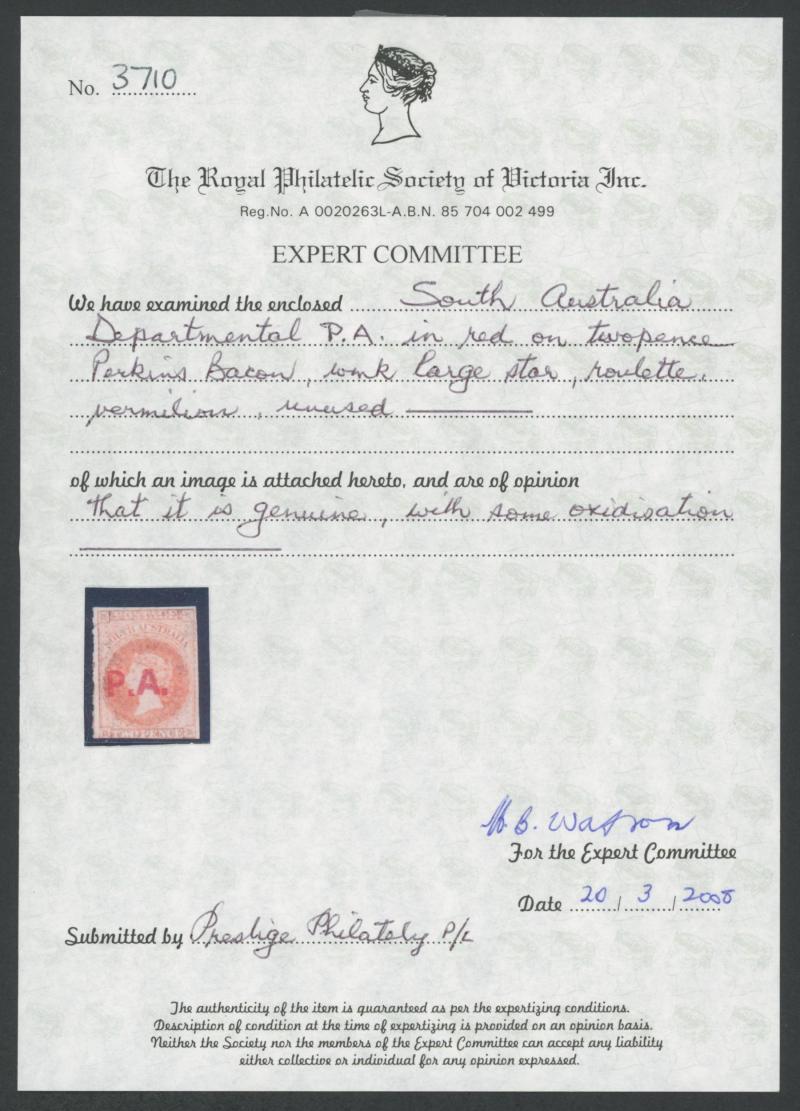 No. 3710
The Royal Philatelic Society of Victoria Inc.
Reg.No. A 0020263L-A.B.N. 85 704 002 499
EXPERT COMMITTEE
We have examined the enclosed South Australia
Departmental P.A. in red on twopence
Perkins Bacon, wmk large star, roulette,
vermilion, unused
of which an image is attached hereto, and are of opinion
that it is genuine, with some oxidisation
POSTAGE
SOUTH AUSTRALIA
P.A.
TWO PENCE
H. B. Watson
For the Expert Committee
Date 20/3/2008
Submitted by Prestige Philately P/L
The authenticity of the item is guaranteed as per the expertizing conditions.
Description of condition at the time of expertizing is provided on an opinion basis.
Neither the Society nor the members of the Expert Committee can accept any liability
either collective or individual for any opinion expressed.